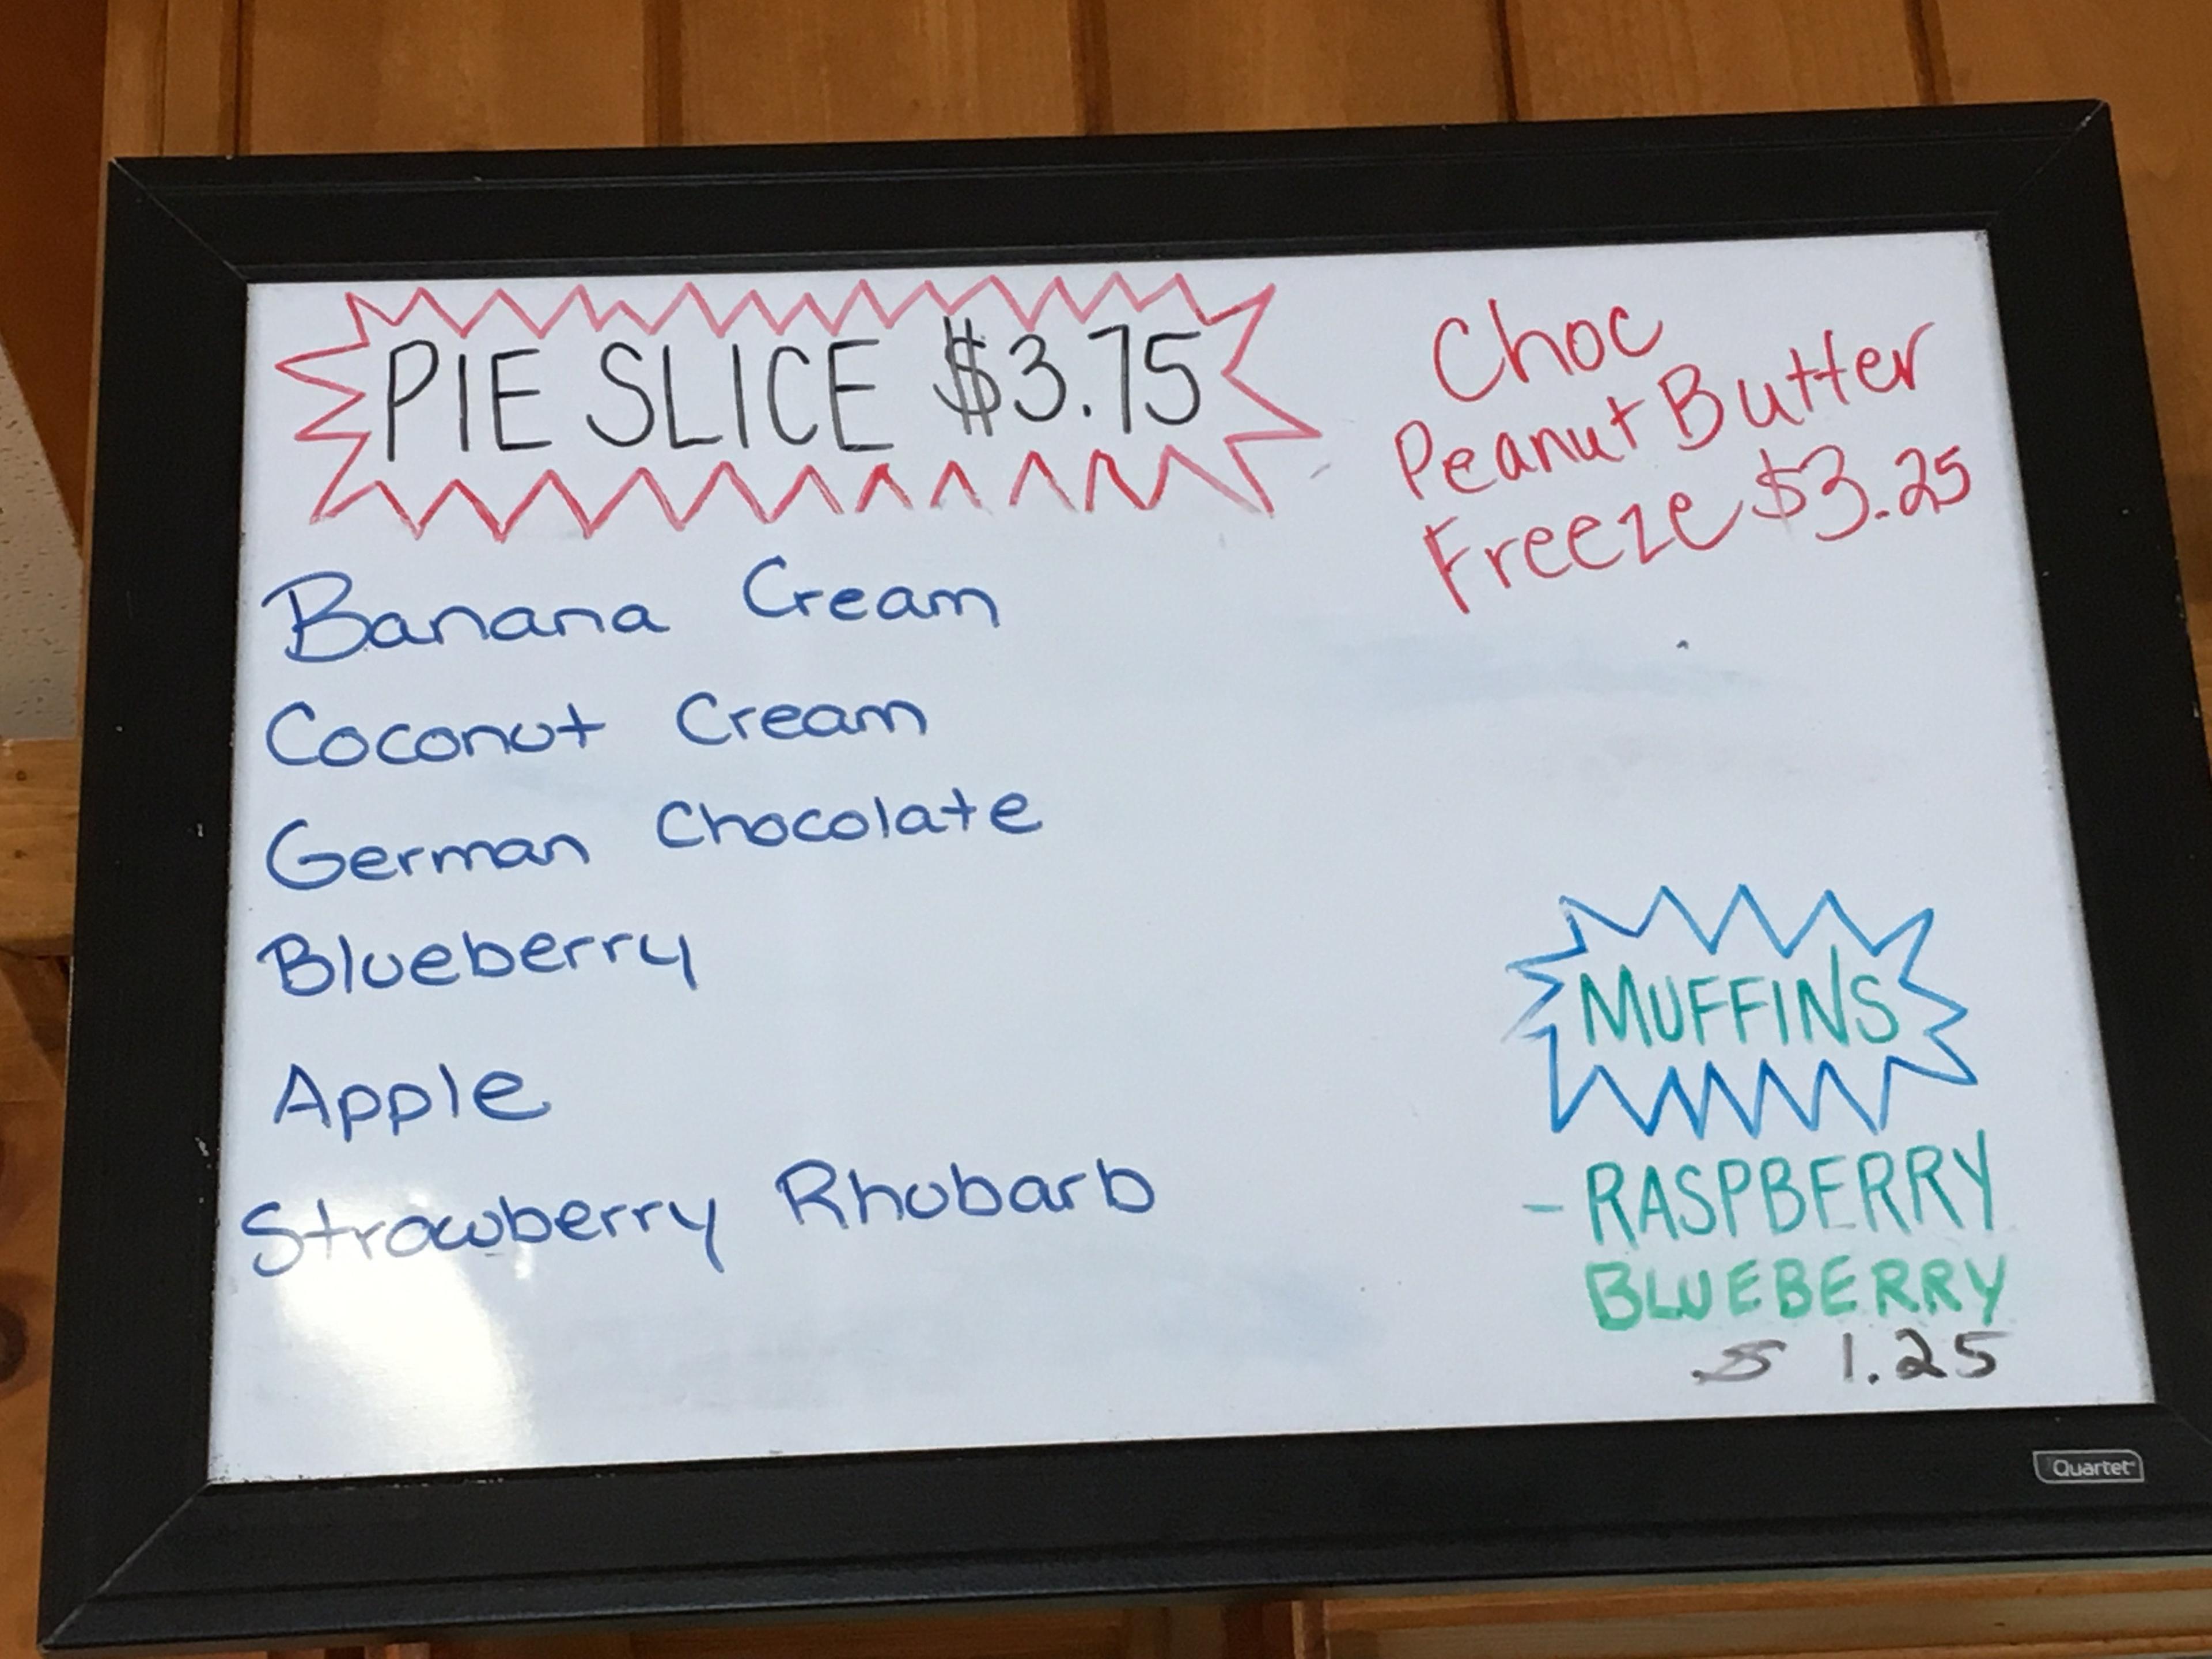 PIE SLICE $3.75
Banana Cream
Coconut Cream
German Chocolate
Blueberry
Apple
Strawberry Rhubarb
Choc
Peanut Butter
Freeze $3.25
MUFFINS
- RASPBERRY
BLUEBERRY
$ 1.25
Quartet